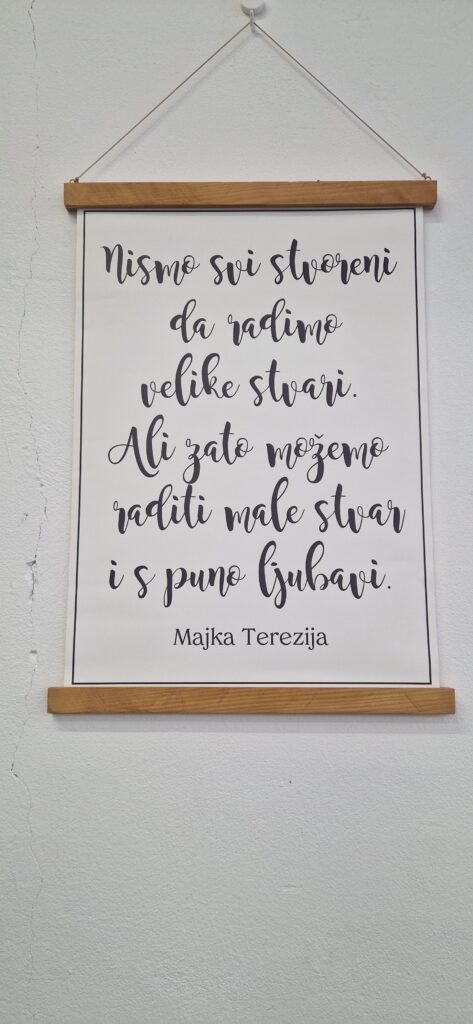 Nismo svi stvoreni
da radimo
velike stvari.
Ali zato možemo
raditi male stvar
i s puno ljubavi.
Majka Terezija